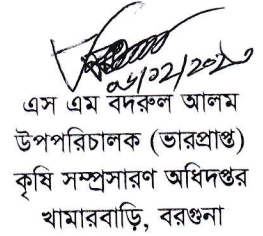 এস এম বদরুল আলম
উপপরিচালক (ভারপ্রাপ্ত)
কৃষি সম্প্রসারণ অধিদপ্তর
খামারবাড়ি, বরগুনা